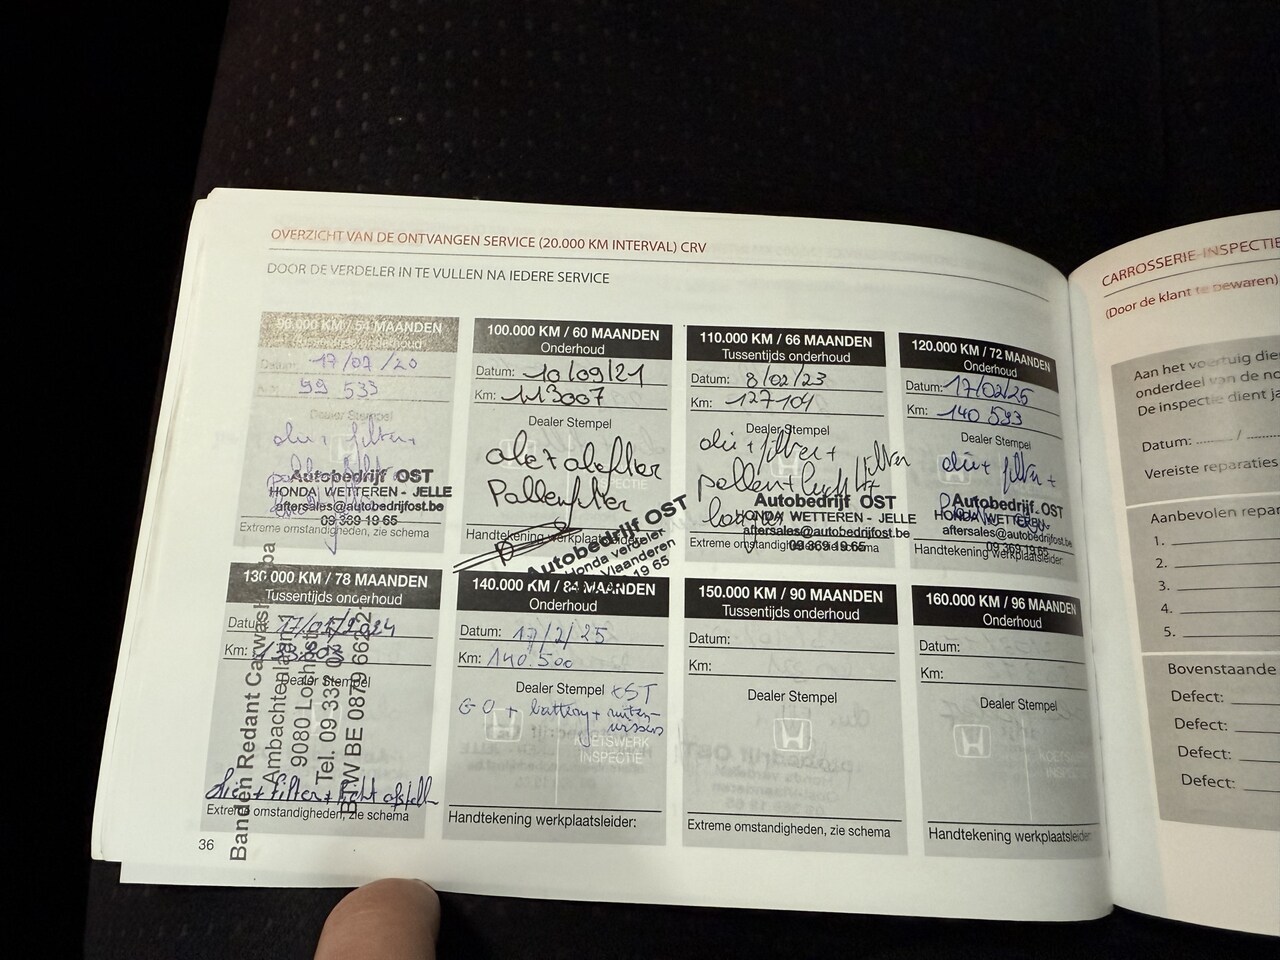 OVERZICHT VAN DE ONTVANGEN SERVICE (20.000 KM INTERVAL) CRV
DOOR DE VERDELER IN TE VULLEN NA IEDERE SERVICE
90.000 KM / 54 MAANDEN
Tussentijds onderhoud
Datum: 17/07/20
Km: 99 533
Dealer Stempel
olie + filter +
Autobedrijf OST
HONDA WETTEREN - JELLE
aftersales@autobedrijfost.be
09 369 19 65
Extreme omstandigheden, zie schema
100.000 KM / 60 MAANDEN
Onderhoud
Datum: 10/09/21
Km: 113007
Dealer Stempel
Pollenfilter
Handtekening werkplaatsleider:
Autobedrijf OST
Honda verdeler
Vlaanderen
19 65
110.000 KM / 66 MAANDEN
Tussentijds onderhoud
Datum: 8/02/23
Km: 127104
Dealer Stempel
olie + filter +
pollen + lucht filter
Autobedrijf OST
HONDA WETTEREN - JELLE
aftersales@autobedrijfost.be
09 369 19 65
Extreme omstandigheden, zie schema
120.000 KM / 72 MAANDEN
Onderhoud
Datum: 17/02/25
Km: 140 533
Dealer Stempel
olie + filter +
Autobedrijf OST
HONDA WETTEREN
09 369 19 65
Handtekening werkplaatsleider:
130.000 KM / 78 MAANDEN
Tussentijds onderhoud
Datum:
Km:
Dealer Stempel
Banden Redant Carwash
Ambachtenlaan
9080 Lochristi
Tel. 09
BTW BE 0879 662
olie + filter + licht afstell
Extreme omstandigheden, zie schema
140.000 KM / 84 MAANDEN
Onderhoud
Datum: 17/2/25
Km: 140.500
Dealer Stempel OST
GO + battery + ruiten-
wissers
KOETSWERK
INSPECTIE
Handtekening werkplaatsleider:
150.000 KM / 90 MAANDEN
Tussentijds onderhoud
Datum:
Km:
Dealer Stempel
Extreme omstandigheden, zie schema
160.000 KM / 96 MAANDEN
Onderhoud
Datum:
Km:
Dealer Stempel
Handtekening werkplaatsleider:
36
CARROSSERIE-INSPECTIE
(Door de klant te bewaren)
Aan het voertuig
onderdeel van de
De inspectie dient
Datum: ......... / .........
Vereiste reparaties
Aanbevolen
1.
2.
3.
4.
5.
Bovenstaande
Defect:
Defect:
Defect:
Defect: